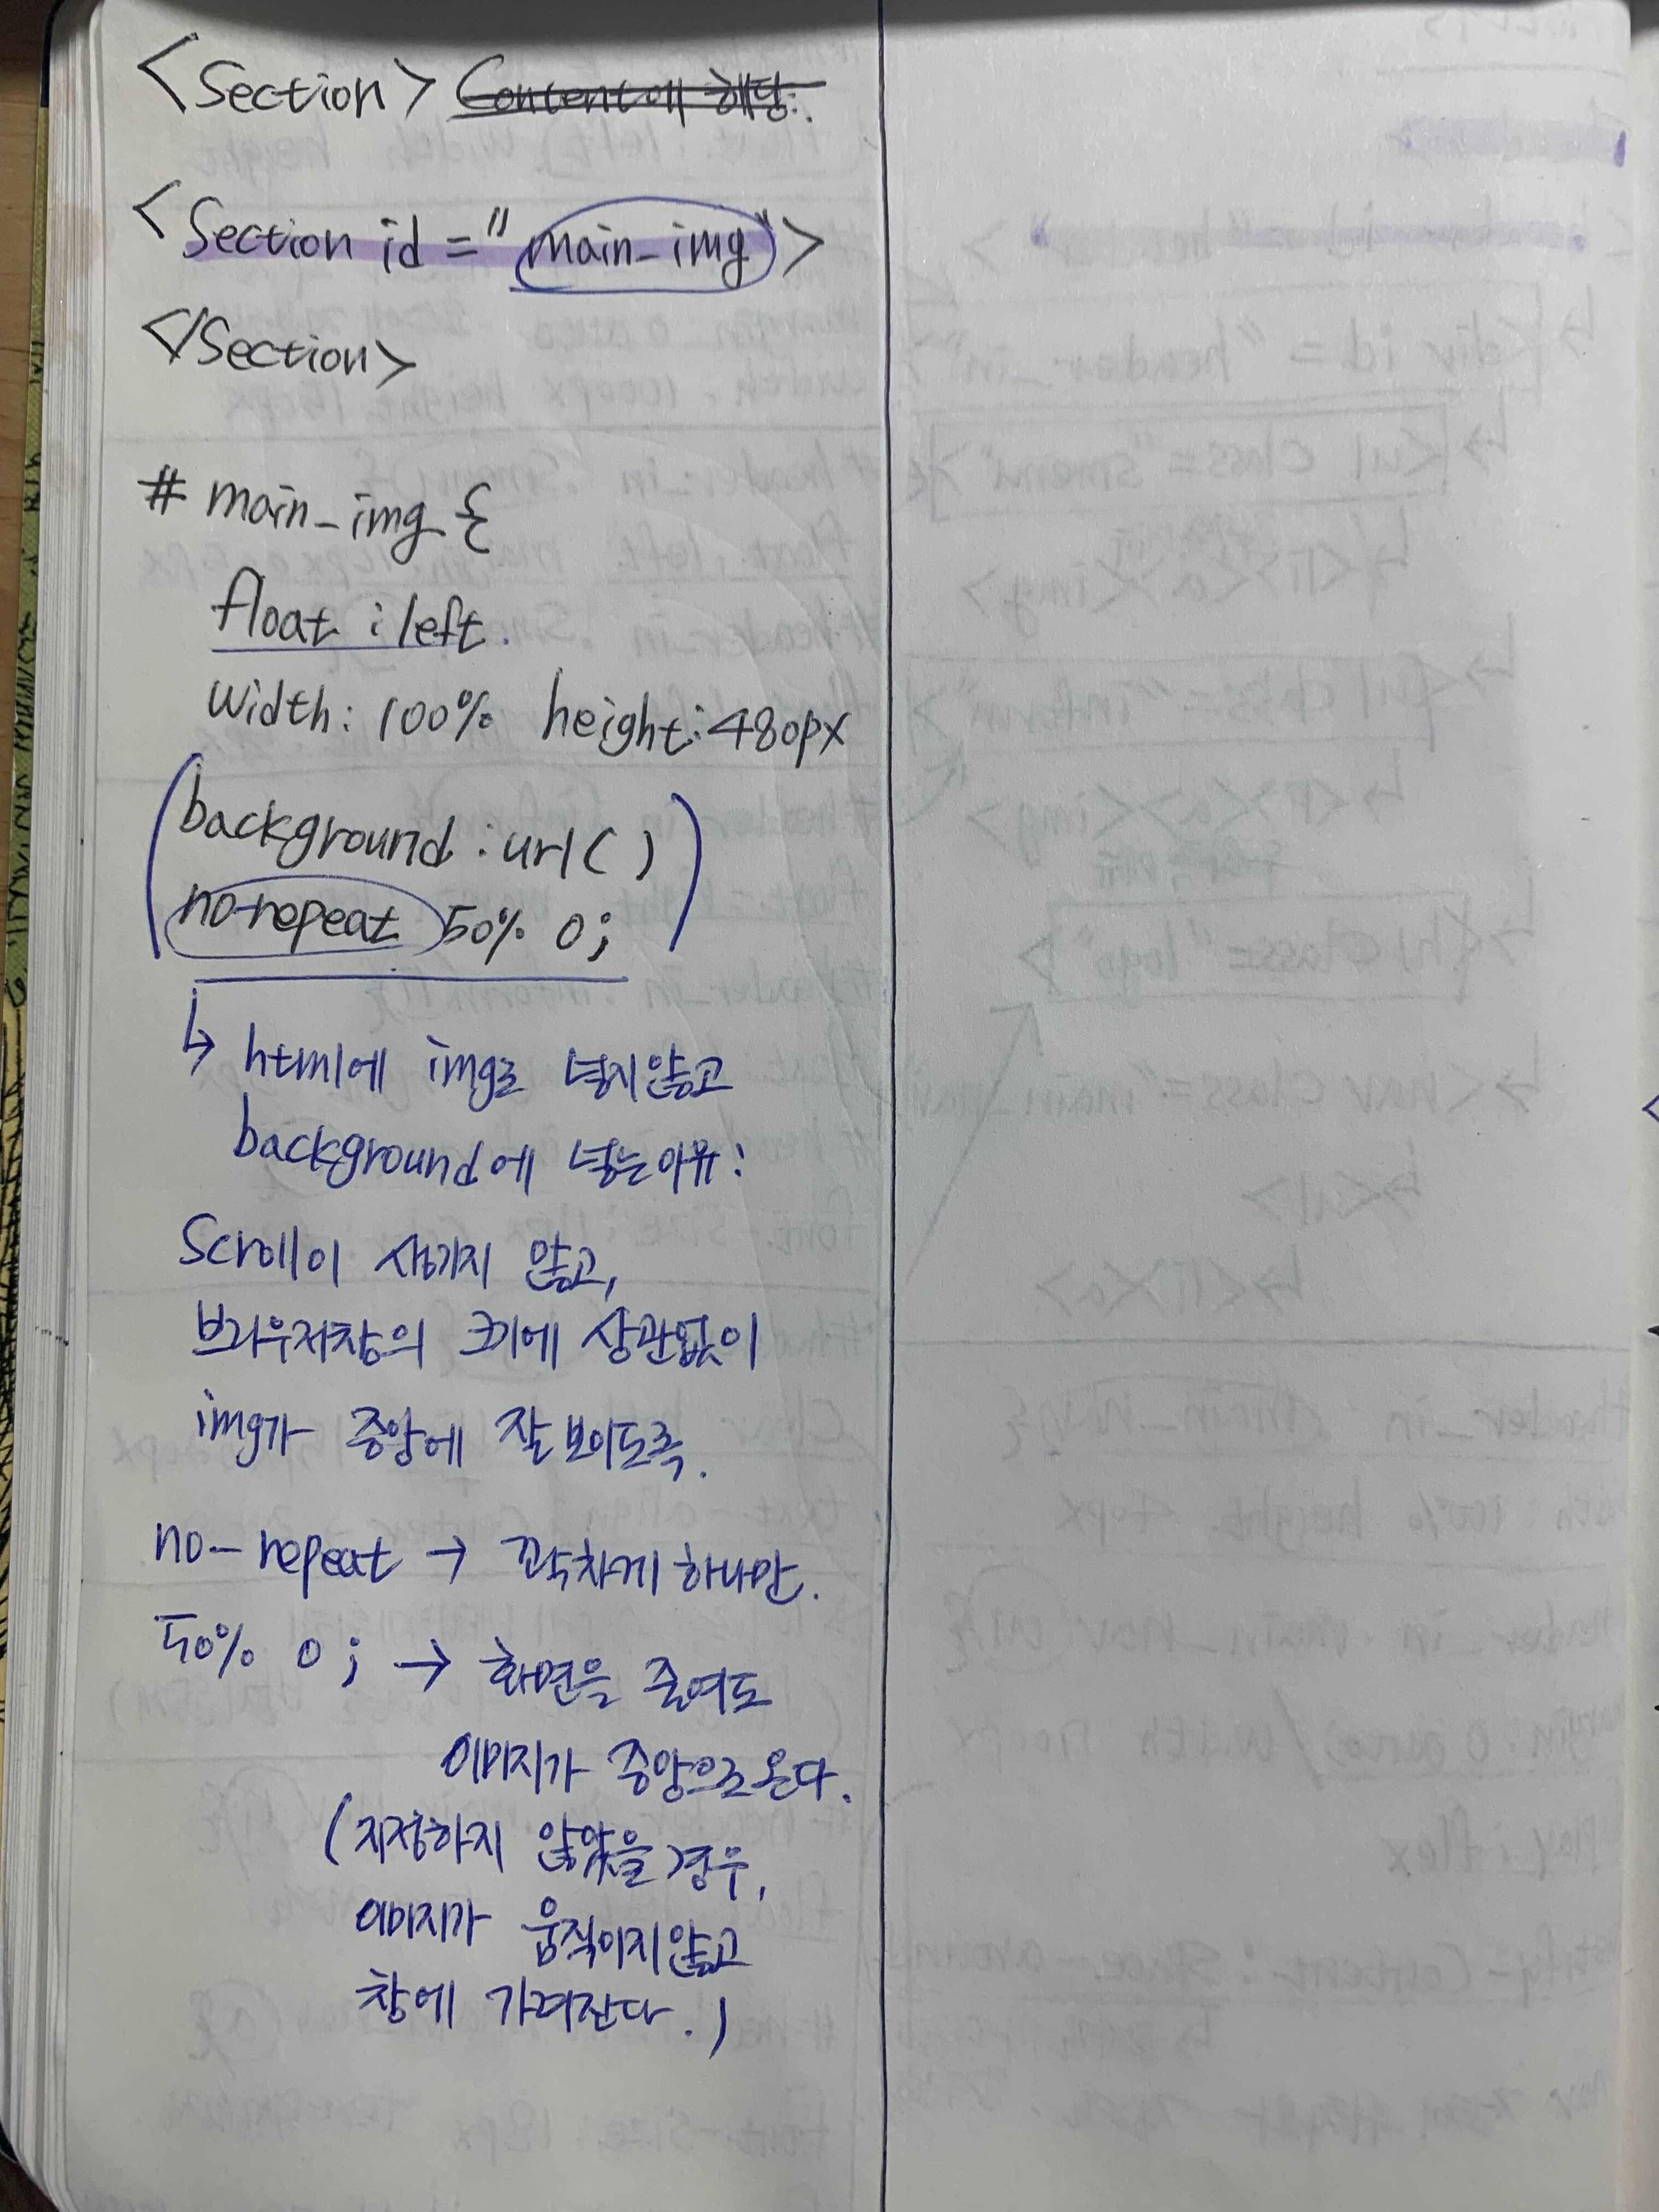 <Section> Content에 해당.
<Section id="main_img">
</Section>
# main_img {
float : left.
width: 100% height: 480px
background : url( )
no-repeat 50% 0;
↳ html에 img로 넣지않고
background에 넣는이유:
Scroll이 생기지 않고,
브라우저창의 크기에 상관없이
img가 중앙에 잘 보이도록.
no-repeat → 꽉차게 하나만.
50% 0 ; → 화면을 줄여도
이미지가 중앙으로 온다.
(지정하지 않았을 경우,
이미지가 움직이지않고
창에 가려진다.)